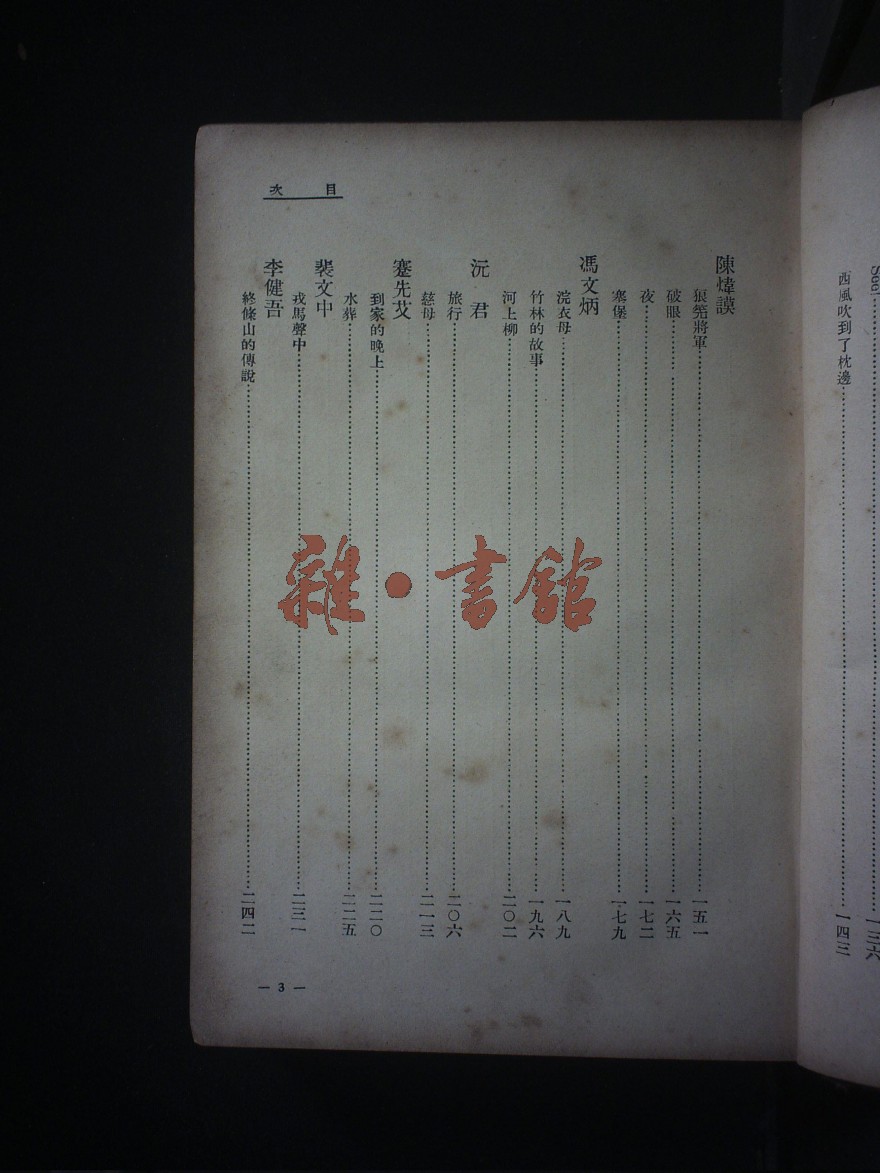 See!……一三六
西風吹到了枕邊……一四三
目次
陳煒謨
狼筅將軍……一五一
破眼……一六五
夜……一七二
寨堡……一七九
馮文炳
浣衣母……一八九
竹林的故事……一九六
河上柳……二〇二
沅君
旅行……二〇六
慈母……二一三
蹇先艾
到家的晚上……二二〇
水葬……二二五
裴文中
戎馬聲中……二三一
李健吾
終條山的傳說……二四二
— 3 —
雜·書館